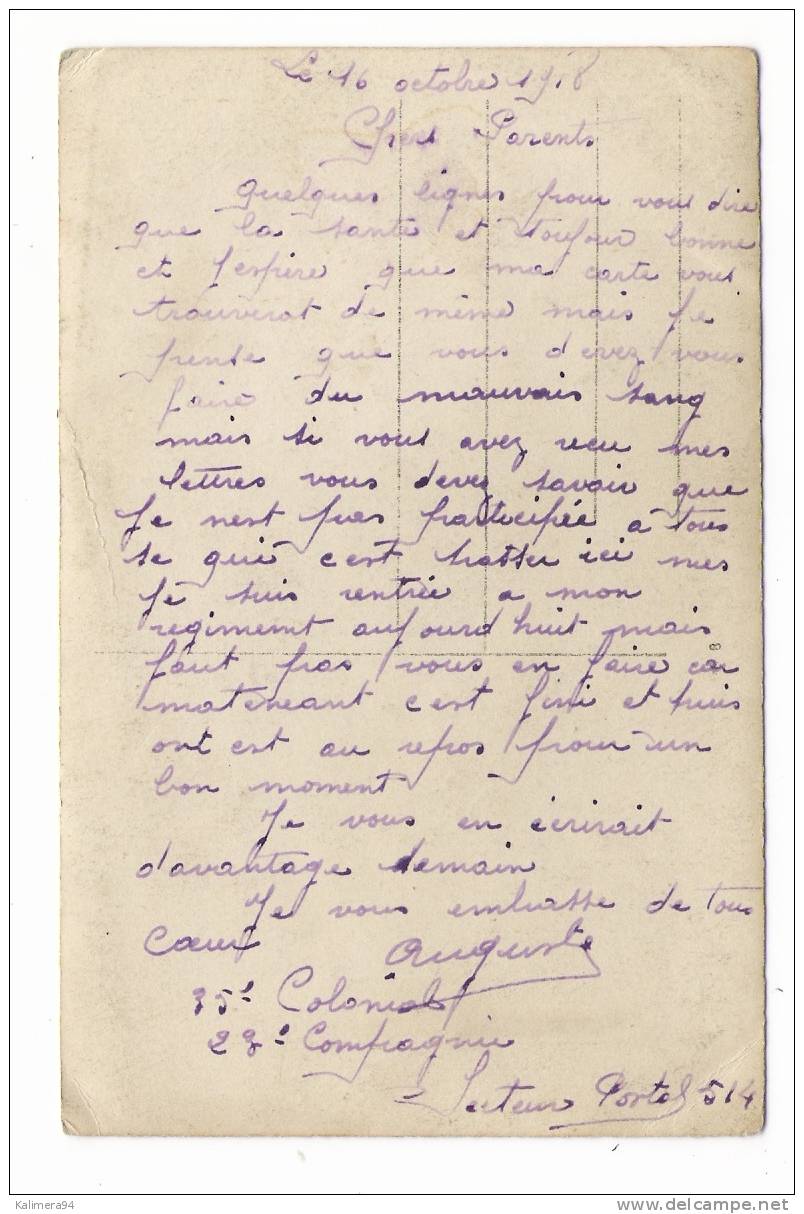 Le 16 octobre 1918
Chers Parents
quelques lignes pour vous dire
que la santé et toujour bonne
et j'espère que ma carte vous
trouverat de même mais Je
pense que vous devez vous
faire du mauvais sang
mais si vous avez recu mes
lettres vous devez savoir que
Je nest pas participée a tous
se qui c'est passer ici mes
Je suis rentrée a mon
regiment aujourd huit mais
faut pas vous en faire car
matenant c'est fini et puis
ont est au repos pour un
bon moment
Je vous en écrirait
davantage demain
Je vous embrasse de tous
Cœur Auguste
35e Colonial
23e Compagnie
Secteur Postal 514
8
Kalimera94
delcampe.net